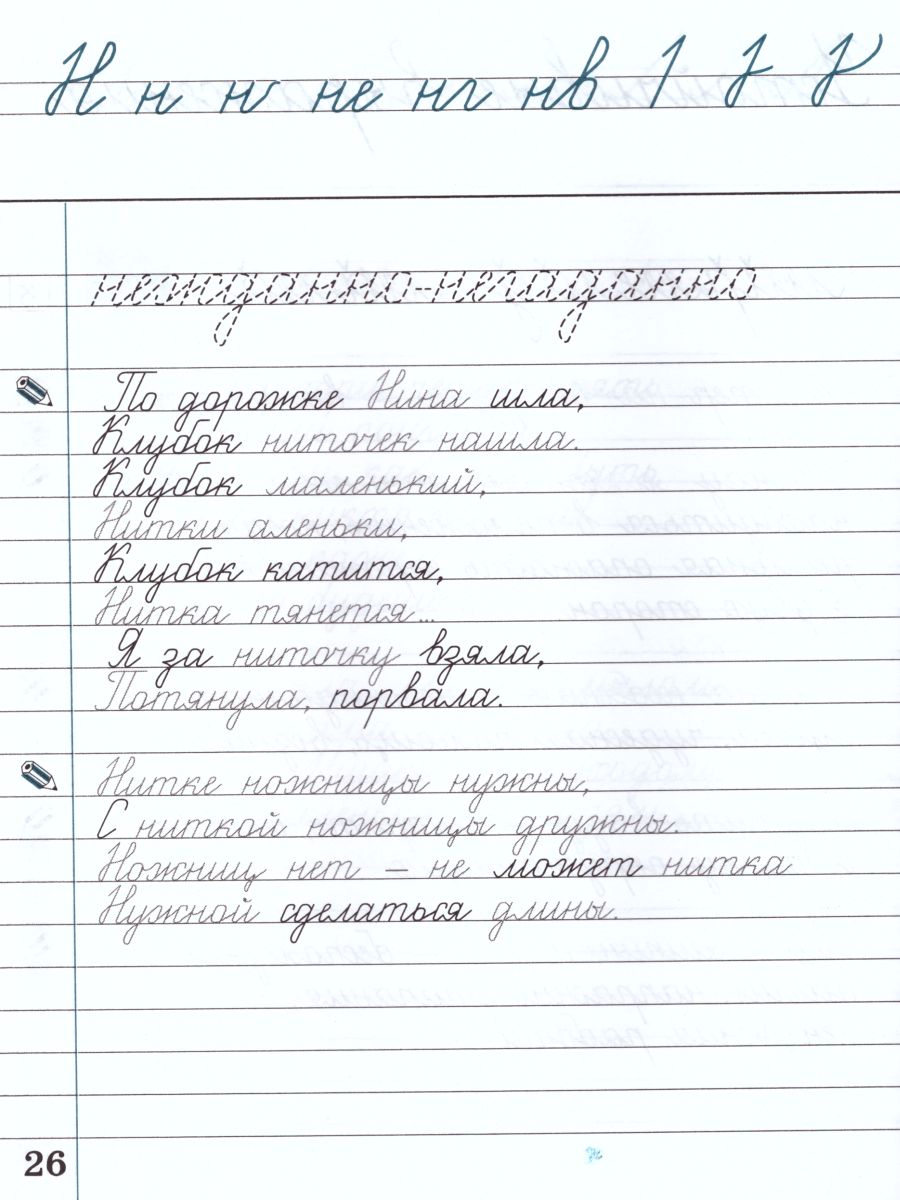 Н н н не нг нв
нежданно-негаданно
По дорожке Нина шла,
Клубок ниточек нашла.
Клубок маленький,
Нитки аленьки,
Клубок катится,
Нитка тянется...
Я за ниточку взяла,
Потянула, порвала.
Нитке ножницы нужны,
С ниткой ножницы дружны.
Ножниц нет – не может нитка
Нужной сделаться длины.
26